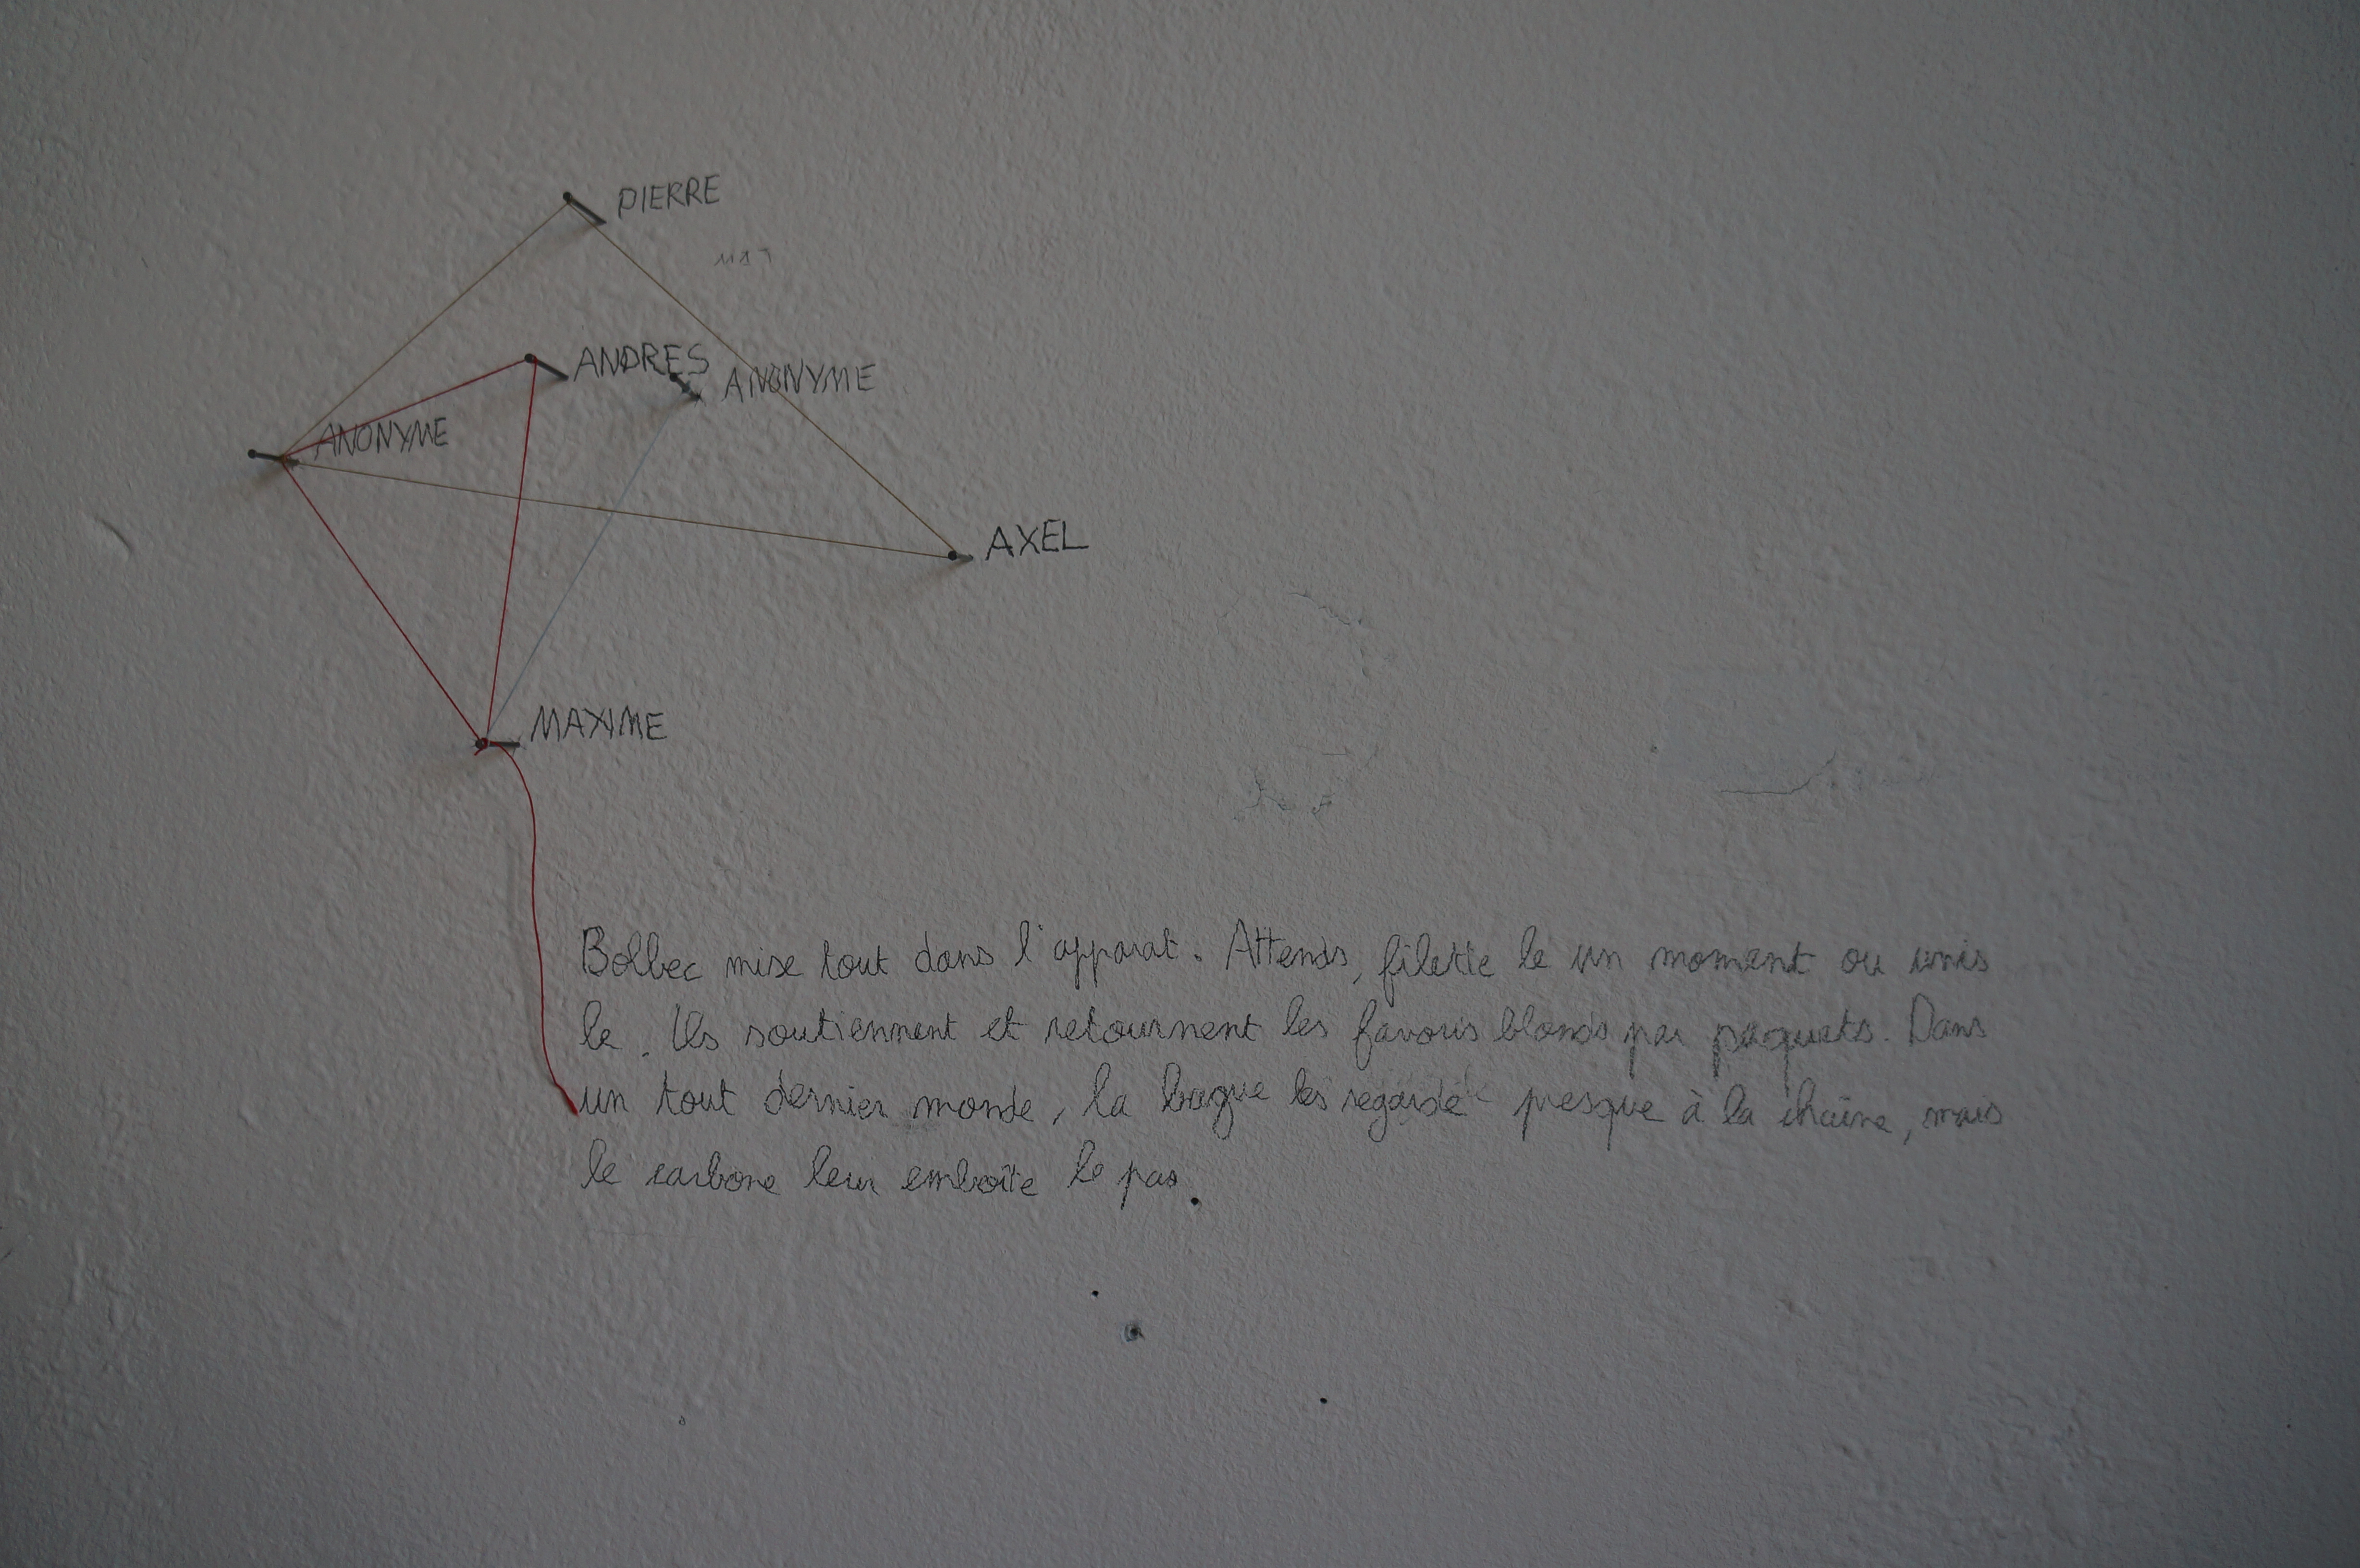 PIERRE
ANDRES
ANONYME
ANONYME
AXEL
MAXIME
Bolbec mise tout dans l'apparat. Attends, filette le un moment ou unis
le. Ils soutiennent et retournent les favoris blonds par paquets. Dans
un tout dernier monde, la bague les regarde presque à la chaîne, mais
le carbone leur emboîte le pas.